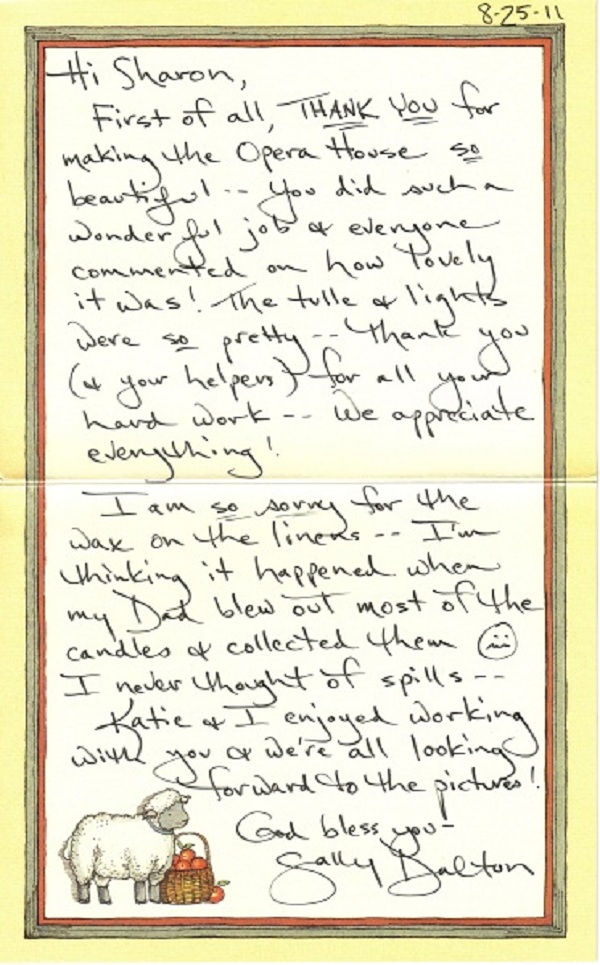 8-25-11
Hi Sharon,
First of all, THANK YOU for
making the Opera House so
beautiful -- You did such a
wonderful job & everyone
commented on how lovely
it was! The tulle & lights
were so pretty -- Thank you
(& your helpers) for all your
hard work -- We appreciate
everything!
I am so sorry for the
wax on the linens -- I'm
thinking it happened when
my Dad blew out most of the
candles & collected them
I never thought of spills --
Katie & I enjoyed working
with you & we're all looking
forward to the pictures!
God bless you-
Sally Dalton